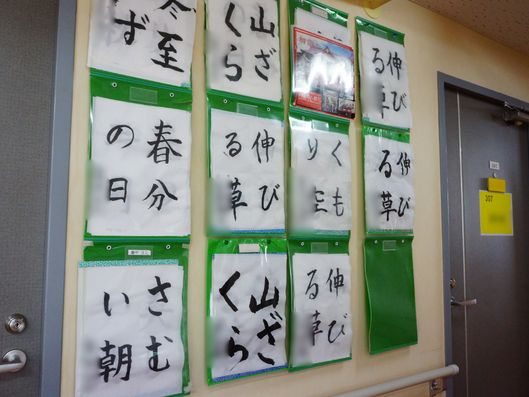 冬至
ず
山ざ
くら
伸び
る草
春分
の日
伸び
る草
くも
伸び
る草
307
さむ
い朝
山ざ
くら
伸び
る草